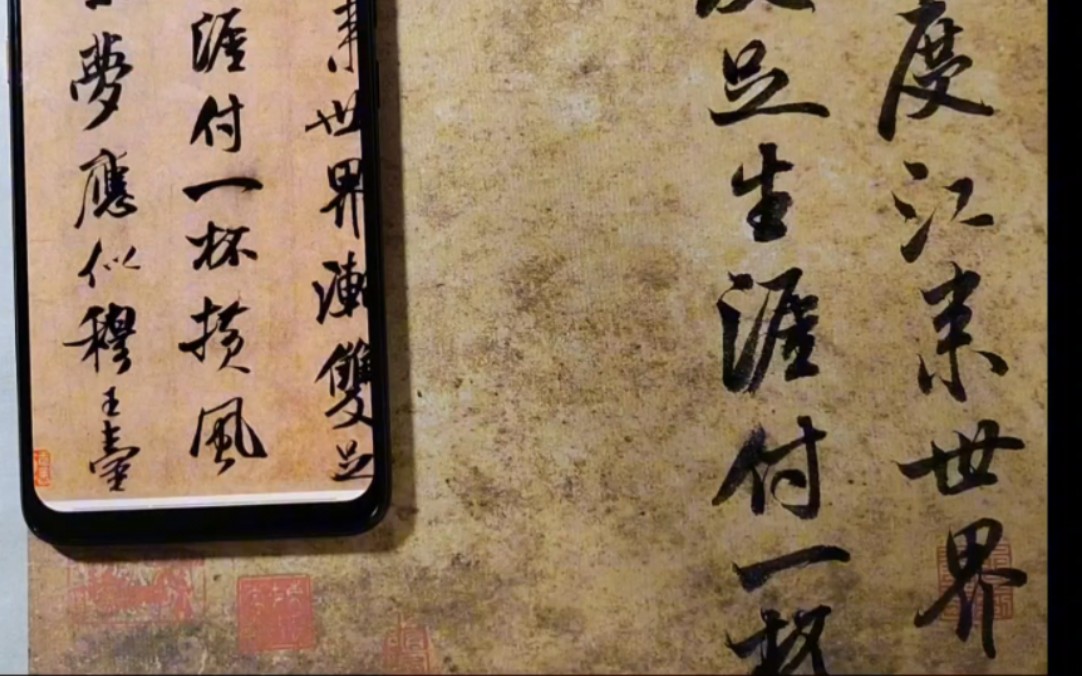 度江来世界
足生涯付一杯
来世界漸雙足
涯付一杯風
夢應似穆王